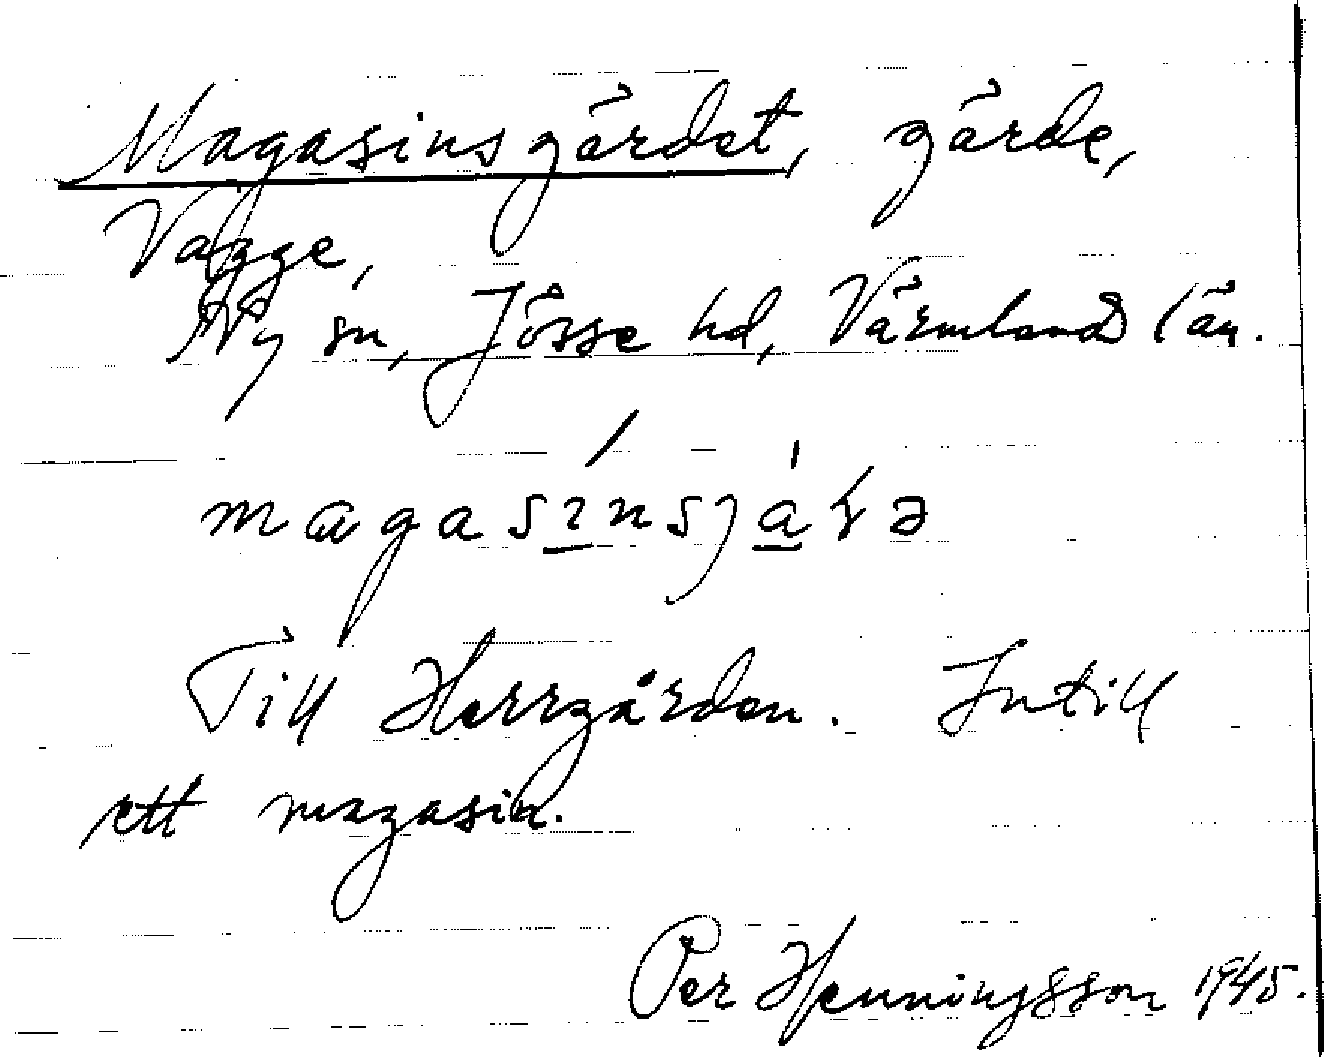 Magasinsgärdet, gärde,
Vagge,
Ny sn, Jösse hd, Värmland län.
Till Herrgården. Intill
ett magasin.
Per Henningsson 1945.